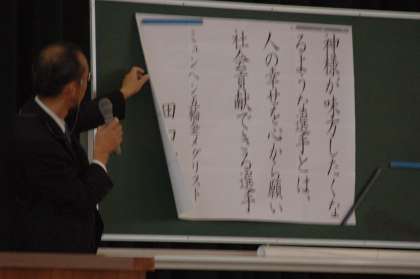 神様が味方したくな
るような選手とは、
人の幸せを心から願い
社会貢献できる選手
ミュンヘン五輪金メダリスト
田口